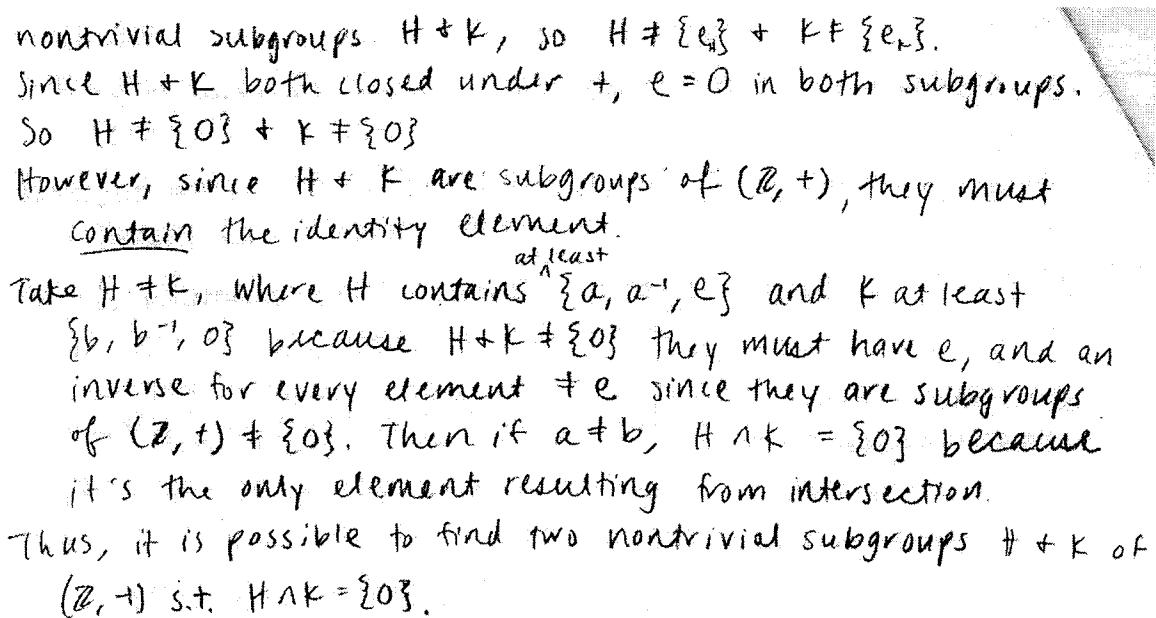 nontrivial subgroups H & K, so H ≠ {eₕ} & K ≠ {eₖ}.
Since H & K both closed under +, e = 0 in both subgroups.
So H ≠ {0} & K ≠ {0}
However, since H & K are subgroups of (ℤ, +), they must
contain the identity element.
at least
Take H ≠ K, where H contains ^ {a, a⁻¹, e} and K at least
{b, b⁻¹, 0} because H & K ≠ {0} they must have e, and an
inverse for every element ≠ e since they are subgroups
of (ℤ, +) ≠ {0}. Then if a ≠ b, H ∩ K = {0} because
it's the only element resulting from intersection.
Thus, it is possible to find two nontrivial subgroups H & K of
(ℤ, +) s.t. H ∩ K = {0}.